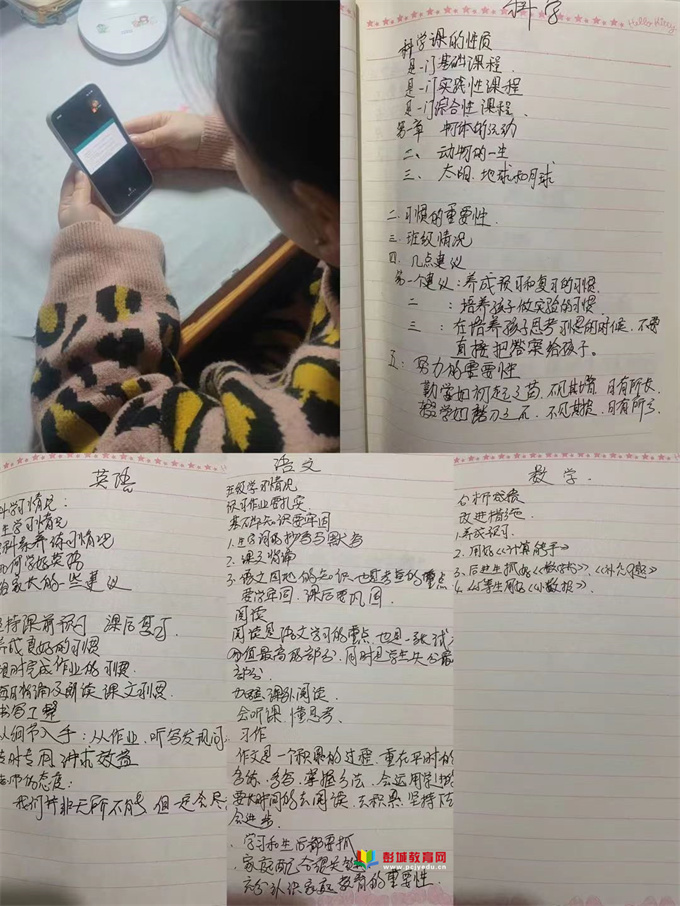 科学
Hello Kitty
科学课的性质
是一门基础课程.
是一门实践性课程
是一门综合性课程.
第一章 物体的运动
二、动物的一生
三、太阳、地球和月球
二.习惯的重要性.
三.班级情况
四.几点建议
第一个建议:养成预习和复习的习惯.
二 :培养孩子做实验的习惯
三 :在培养孩子思考习惯的时候,不要
直接把答案给孩子。
五:努力的重要性
勤学如初起之苗,不见其增,日有所长
磨刀之石,不见其损,日有所亏.
英语
学习情况:
生学习情况
练习情况
何学好英语
家长的一些建议
坚持课前预习 课后复习
养成良好的习惯
按时完成作业的习惯.
朗读课文习惯.
书写工整
从细节入手:从作业、听写发现问
专时专用 讲求效益
老师的态度:
我们并非无所不能 但一定会尽
语文
班级学习情况
预习作业要扎实
基础知识要牢固
1.生字词语的抄写与默写
2.课文背诵
3.语文园地的知识也是考查的重点
要学牢固,课后要巩固
阅读
阅读是语文学习的重点,也是一张试
分值最高的部分,同时是学生失分最
部分
加强课外阅读
会听课,懂思考.
习作
作文是一个积累的过程,重在平时的
多练、多写、掌握方法,会运用
要长时间的去阅读,去积累,坚持
会进步.
学习和生活都要抓
家庭配合很关键
充分认识家庭教育的重要性.
数学.
分析成绩
改进措施
1.养成预习
2.用好《计算能手》
3.后进生抓好《数学书》、《补充习题》
4.优等生用好《小数报》.
彭城教育网
www.pcjyedu.cn